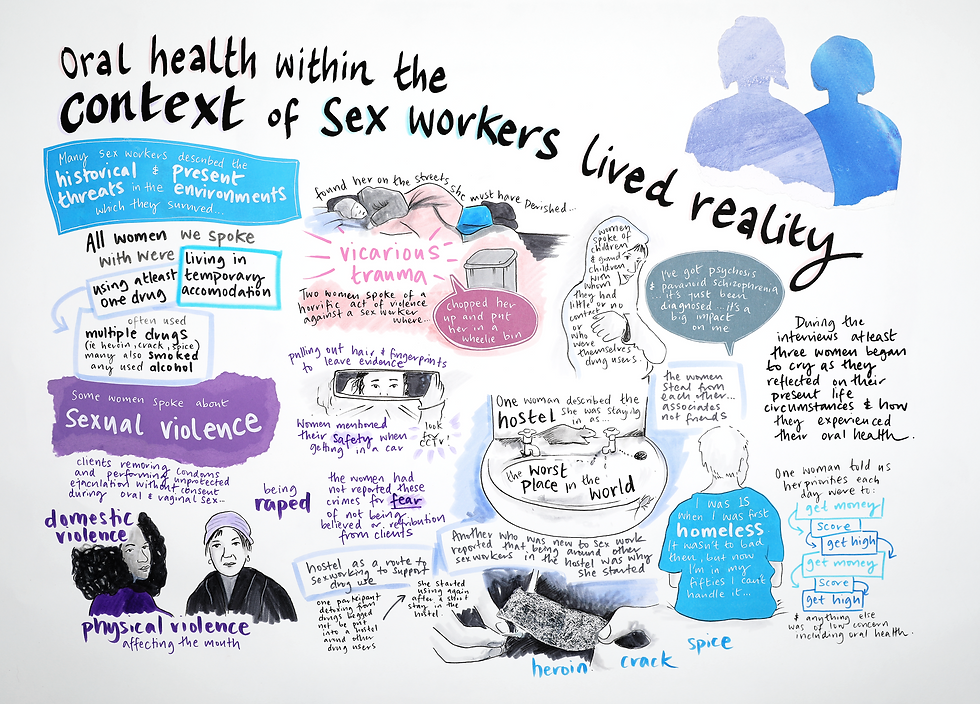 Oral health within the
context of Sex workers lived reality
Many sex workers described the
historical & present
threats in the environments
which they survived...
All women we spoke
with were
Living in
temporary
accomodation
using atleast
one drug
often used
multiple drugs
(ie heroin, crack, spice)
many also smoked
any used alcohol
Some women spoke about
Sexual violence
clients removing condoms
and performing unprotected
ejaculation without consent
during oral & vaginal sex...
being
raped
domestic
violence
physical violence
affecting the mouth
found her on the streets, she must have perished...
vicarious
trauma
Two women spoke of a
horrific act of violence
against a sex worker
where...
chopped her
up and put
her in a
wheelie bin
pulling out hair & fingerprints
to leave evidence
Women mentioned
their safety when
getting in a car
look
for
CCTV!
the women had
not reported these
crimes for fear
of not being
believed or retribution
from clients
hostel as a route to
sexworking to support
drug use
one participant
detoxing from
drugs begged
not be put
into a hostel
around other
drug users
she started
using again
after a short
stay in the
hostel.
women
spoke of
children
& grand
children
with
whom
they had
little or no
contact
or who
were
themselves
drug users.
I've got psychosis
& paranoid schizophrenia
... it's just been
diagnosed... it's a
big impact
on me
the women
steal from
each other...
associates
not friends
One woman described the
hostel she was staying
in as...
the worst
place in the
world
Another who was new to sex work
reported that being around other
sexworkers in the hostel was why
she started
heroin crack spice
I was 15
when I was first
homeless
It wasn't to bad
then, but now
I'm in my
fifties I can't
handle it...
During the
interviews atleast
three women began
to cry as they
reflected on their
present life
circumstances & how
they experienced
their oral health.
One woman told us
her priorities each
day were to:
get money
score
get high
get money
score
get high
& anything else
was of low concern
including oral health.